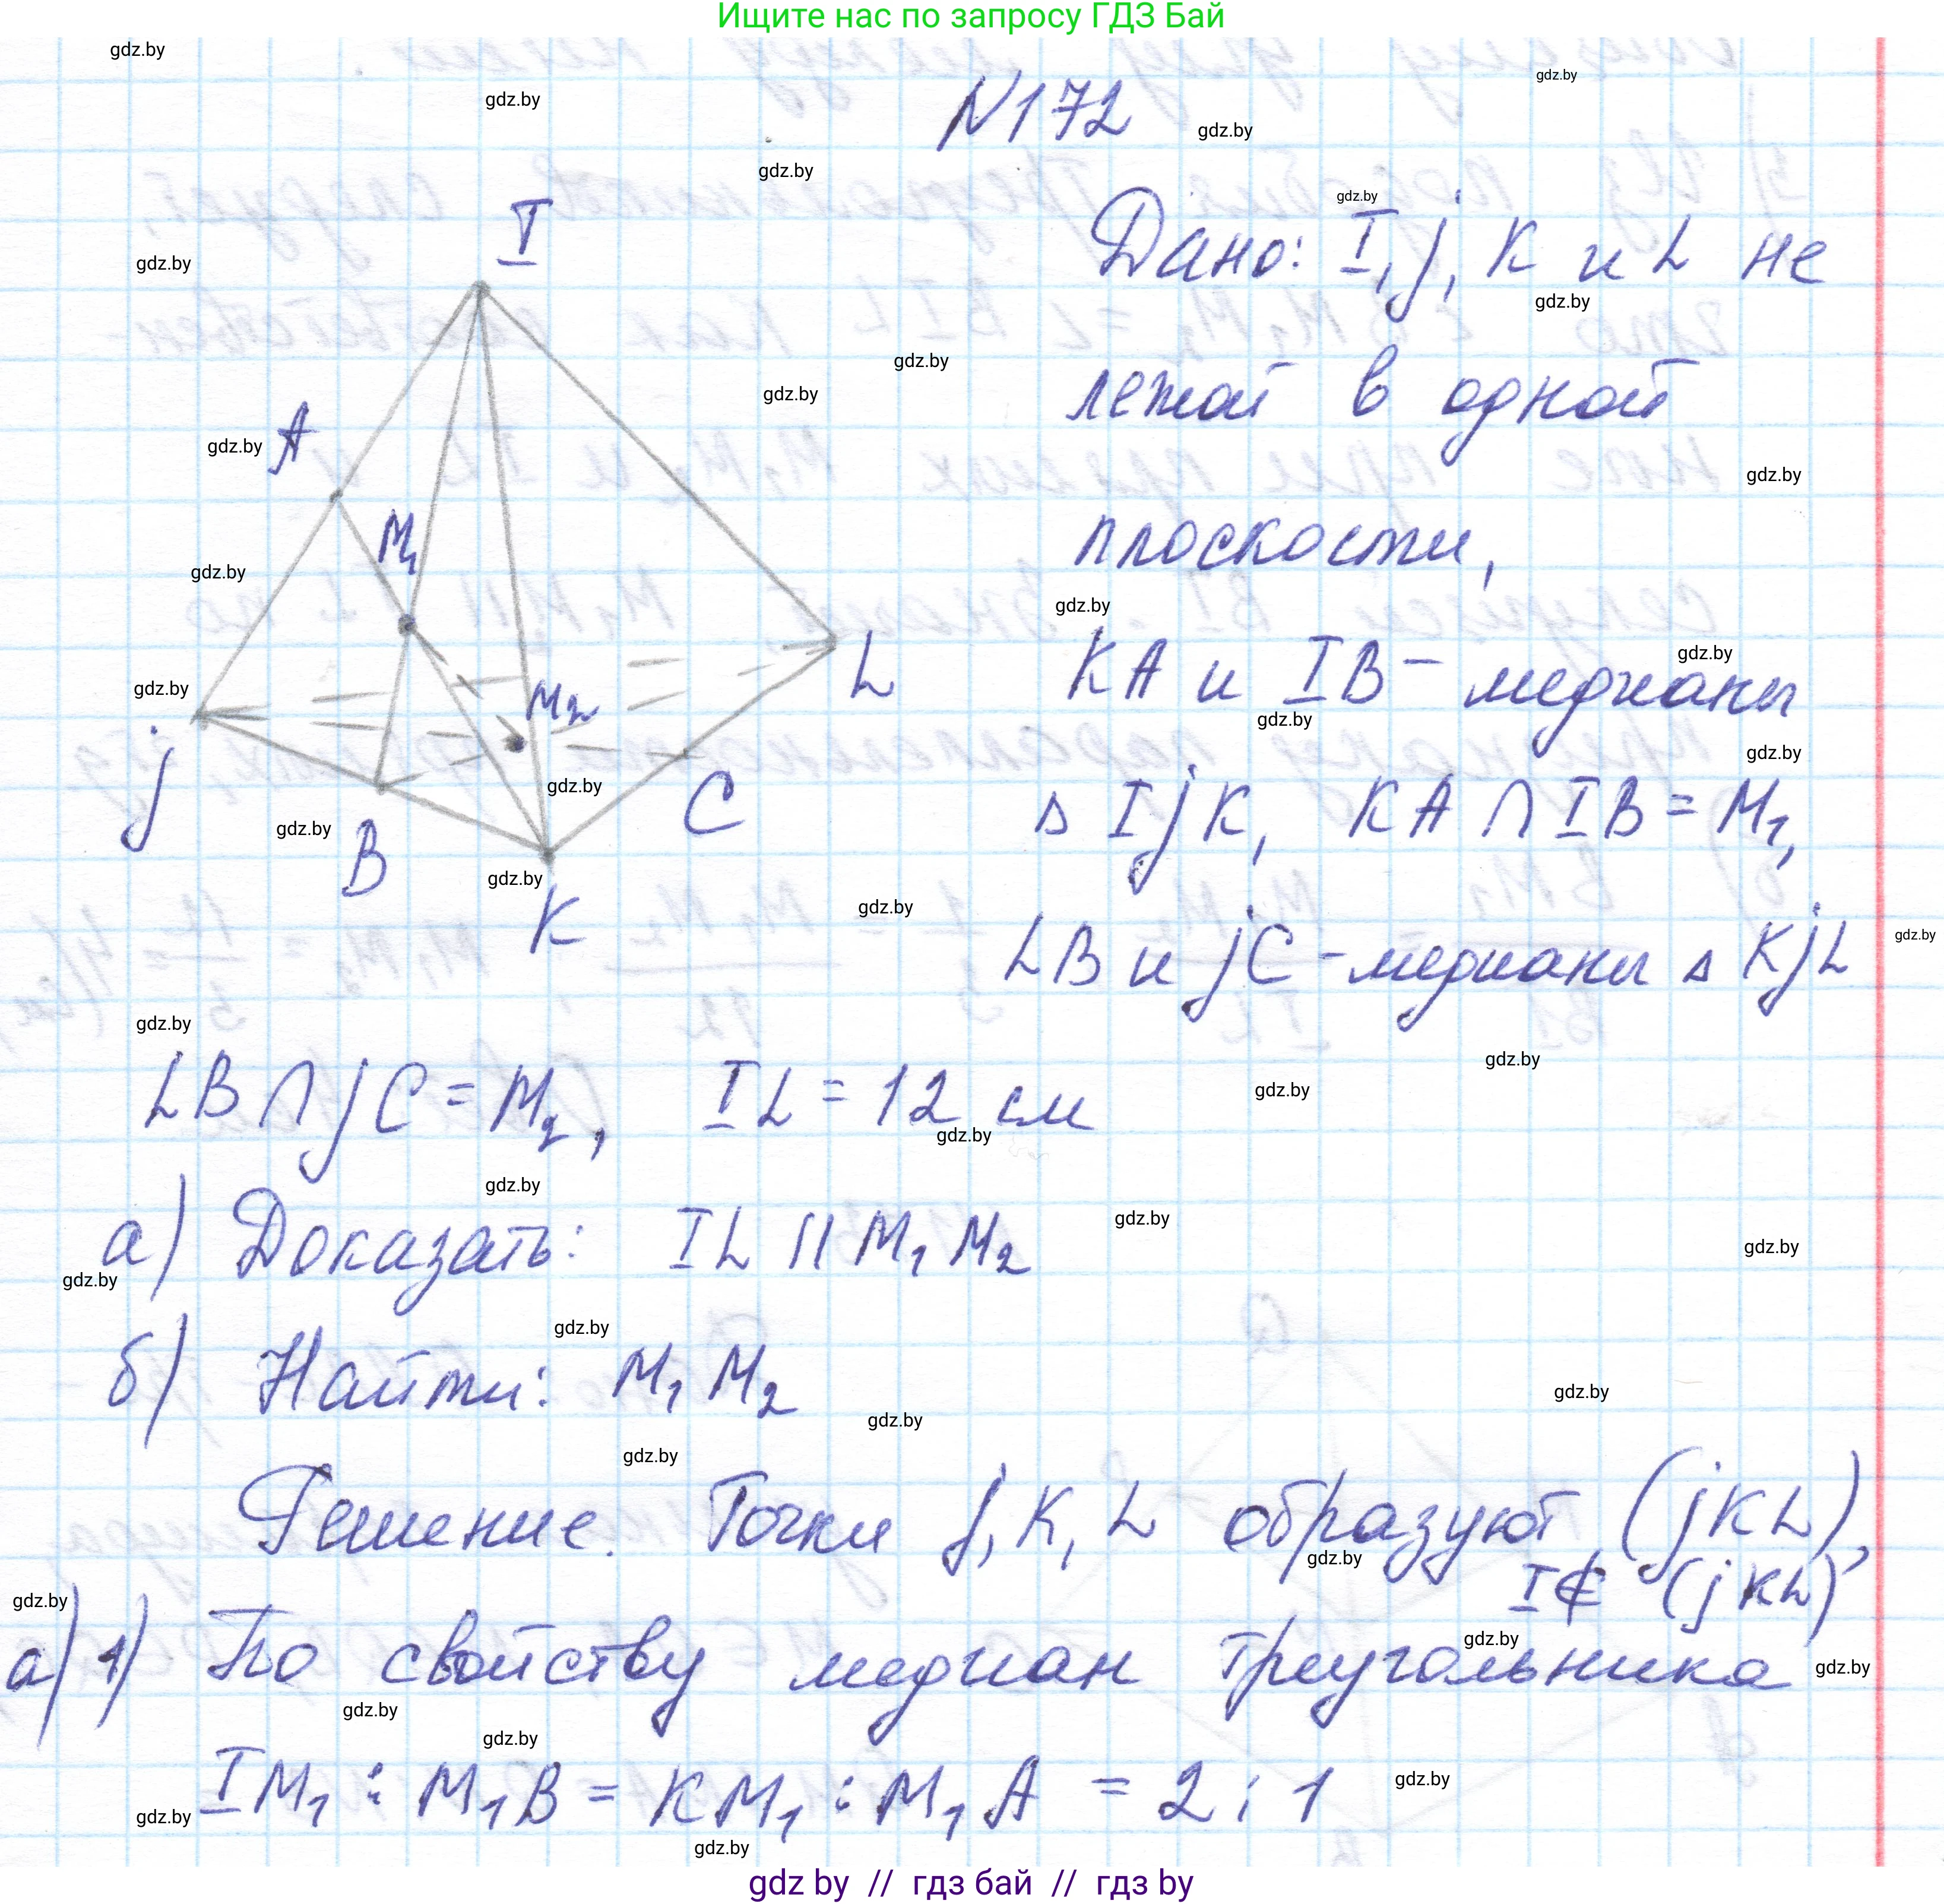 Ищите нас по запросу ГДЗ Бай
N172
I
A
M₁
M₂
L
j
B
C
K
Дано: I, j, K и L не
лежат в одной
плоскости,
KA и IB - медианы
△ IjK, KA ∩ IB = M₁,
LB и jC - медианы △ KjL
LB ∩ jC = M₂, IL = 12 см
а) Доказать: IL || M₁M₂
б) Найти: M₁M₂
Решение. Точки j, K, L образуют (jKL),
I ∉ (jKL)
а) 1) По свойству медиан треугольника
IM₁ : M₁B = KM₁ : M₁A = 2 : 1
gdz by // гдз бай // гдз by